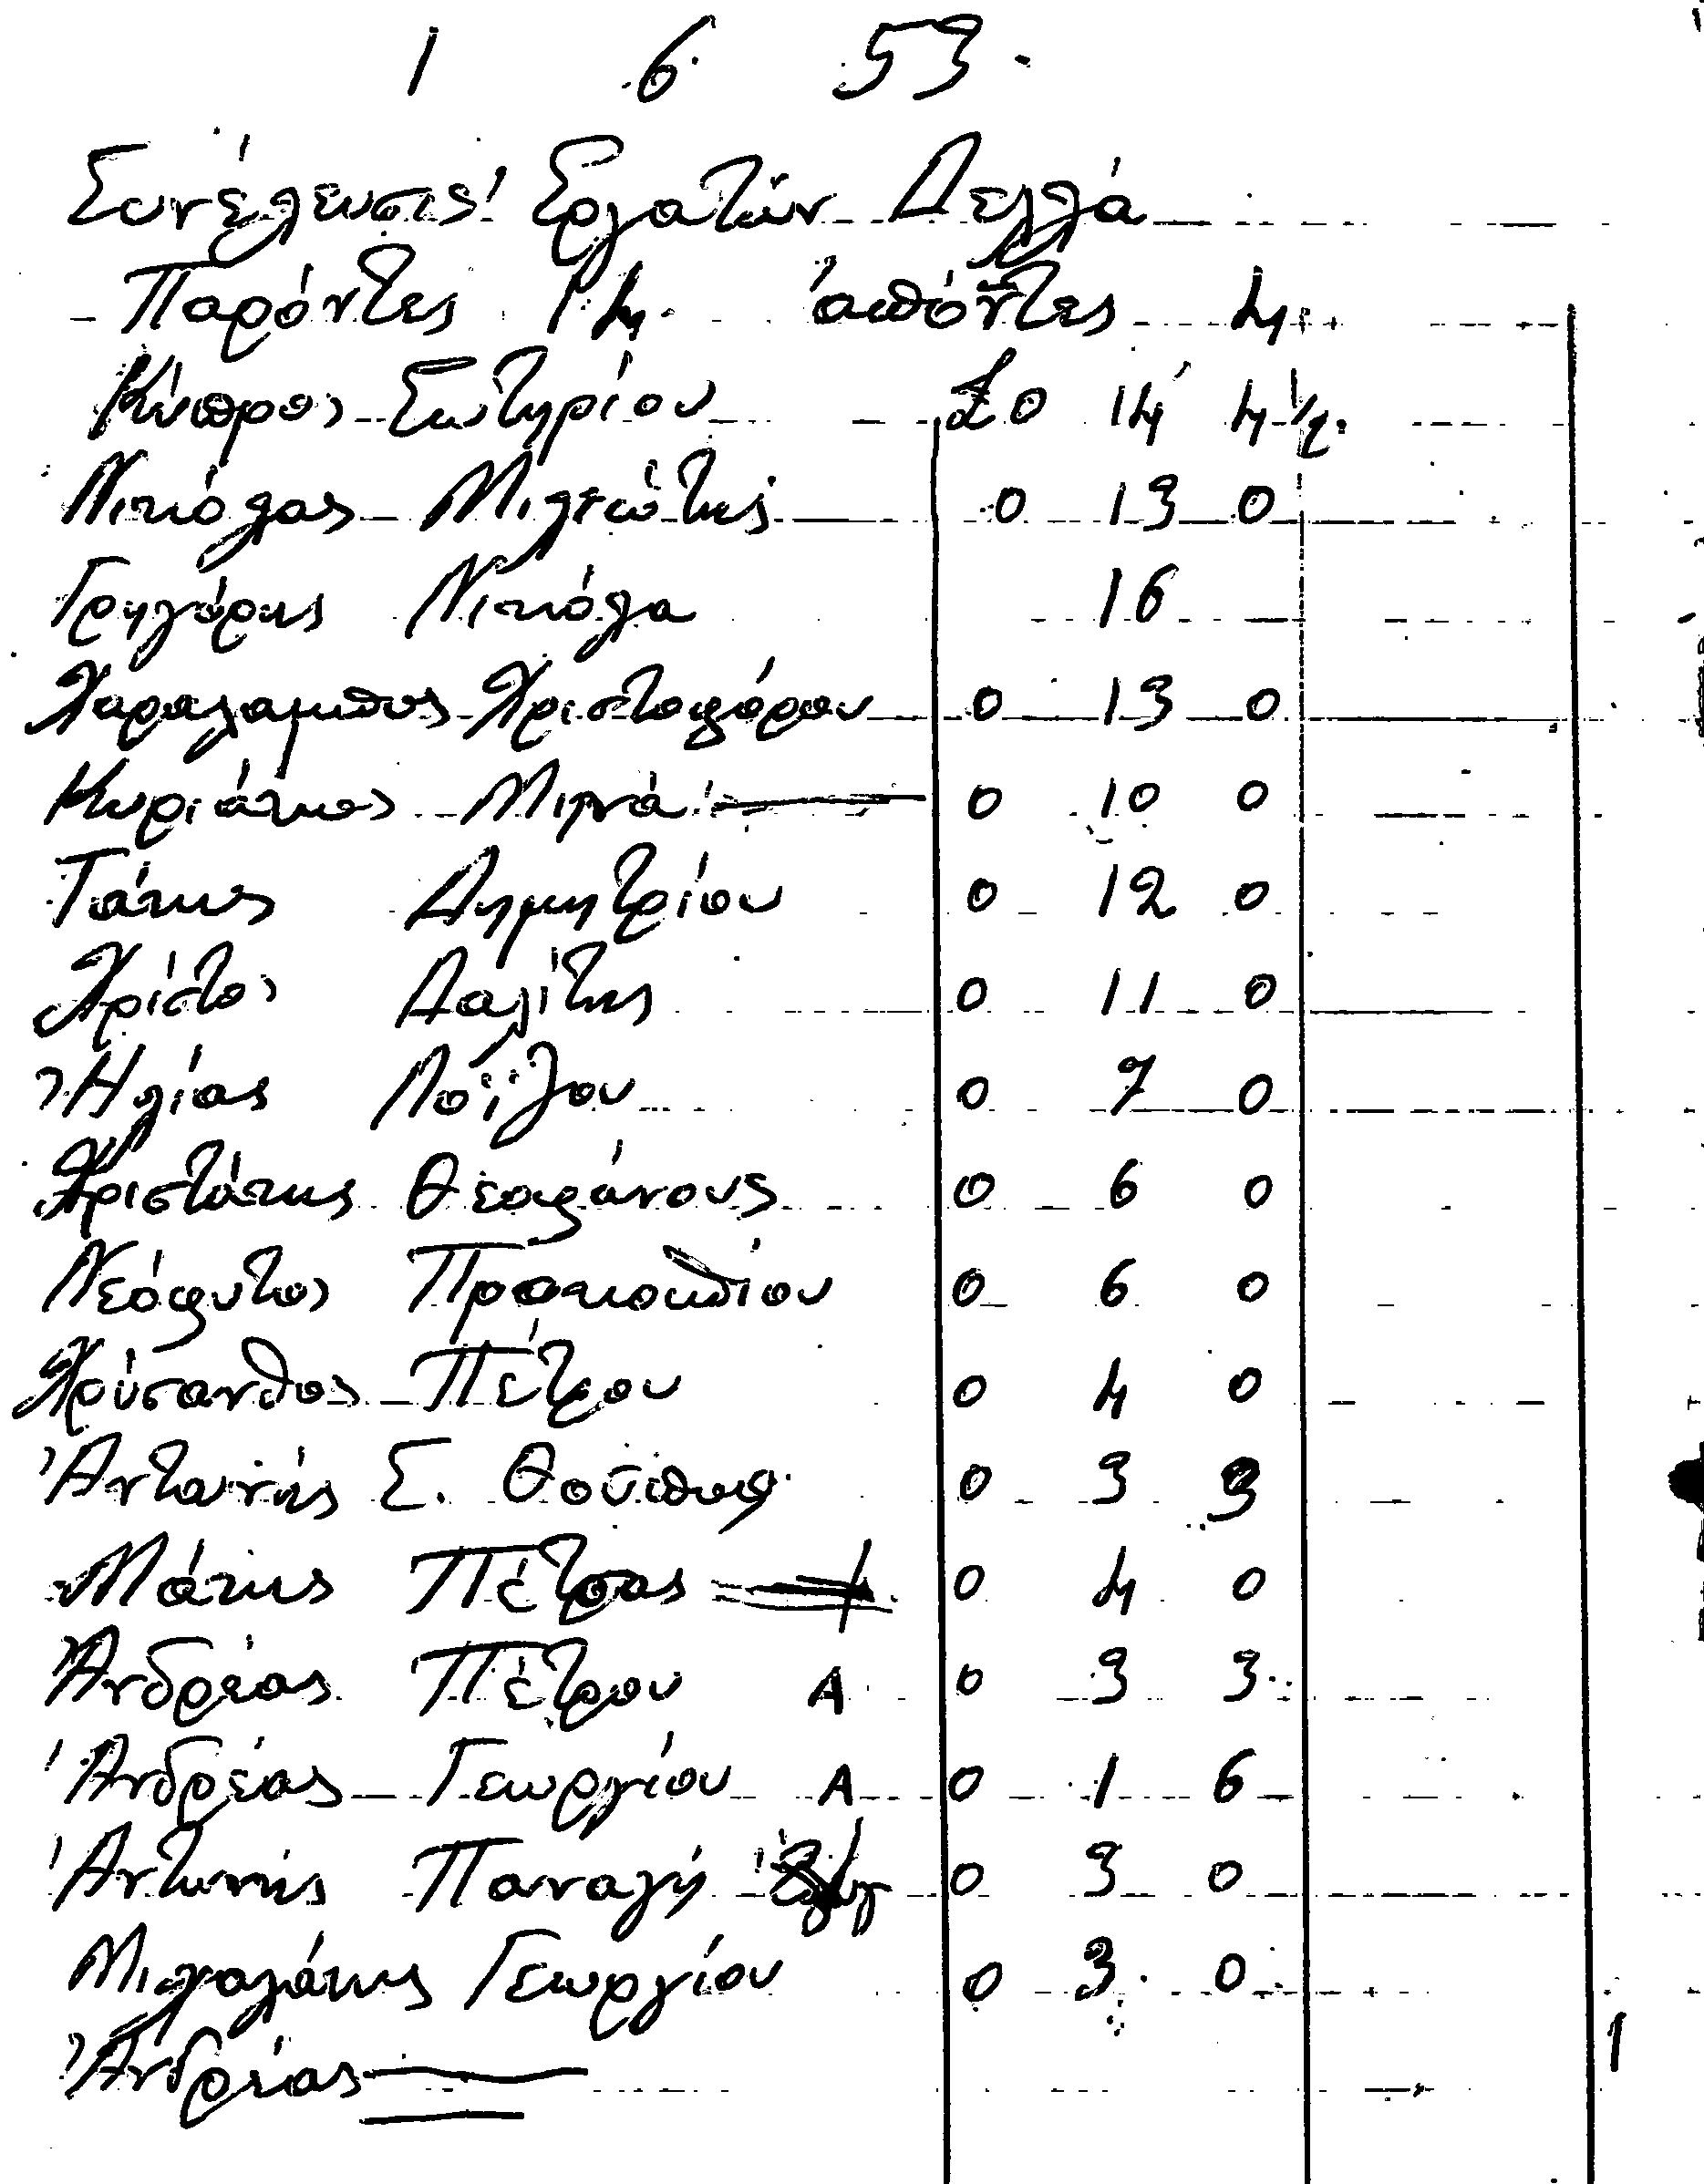 1 6 53.
Συνέλευσις Εργατών Δελλά
Παρόντες 14. απόντες 4
Κύπρος Σωτηρίου £0 14 4½.
Νικόλας Μιλιώτης 0 13 0
Γρηγόρης Νικόλα 16
Χαράλαμπος Χριστοφόρου 0 13 0
Κυριάκος Μηνά 0 10 0
Τάκης Δημητρίου 0 12 0
Χρίστος Δαλίτης 0 11 0
Ἠλίας Λοΐζου 0 7 0
Χριστάκης Θεοφάνους 0 6 0
Νεόφυτος Προκοπίου 0 6 0
Χρύσανθος Πέτρου 0 4 0
Ἀντωνής Σ. 0 3 3
Μάκης Πέτρας 0 4 0
Ἀνδρέας Πέτρου Α 0 3 3.
Ἀνδρέας Γεωργίου Α 0 1 6
Ἀντωνής Παναγή 0 3 0
Μιχαλάκης Γεωργίου 0 3. 0
Ἀνδρέας